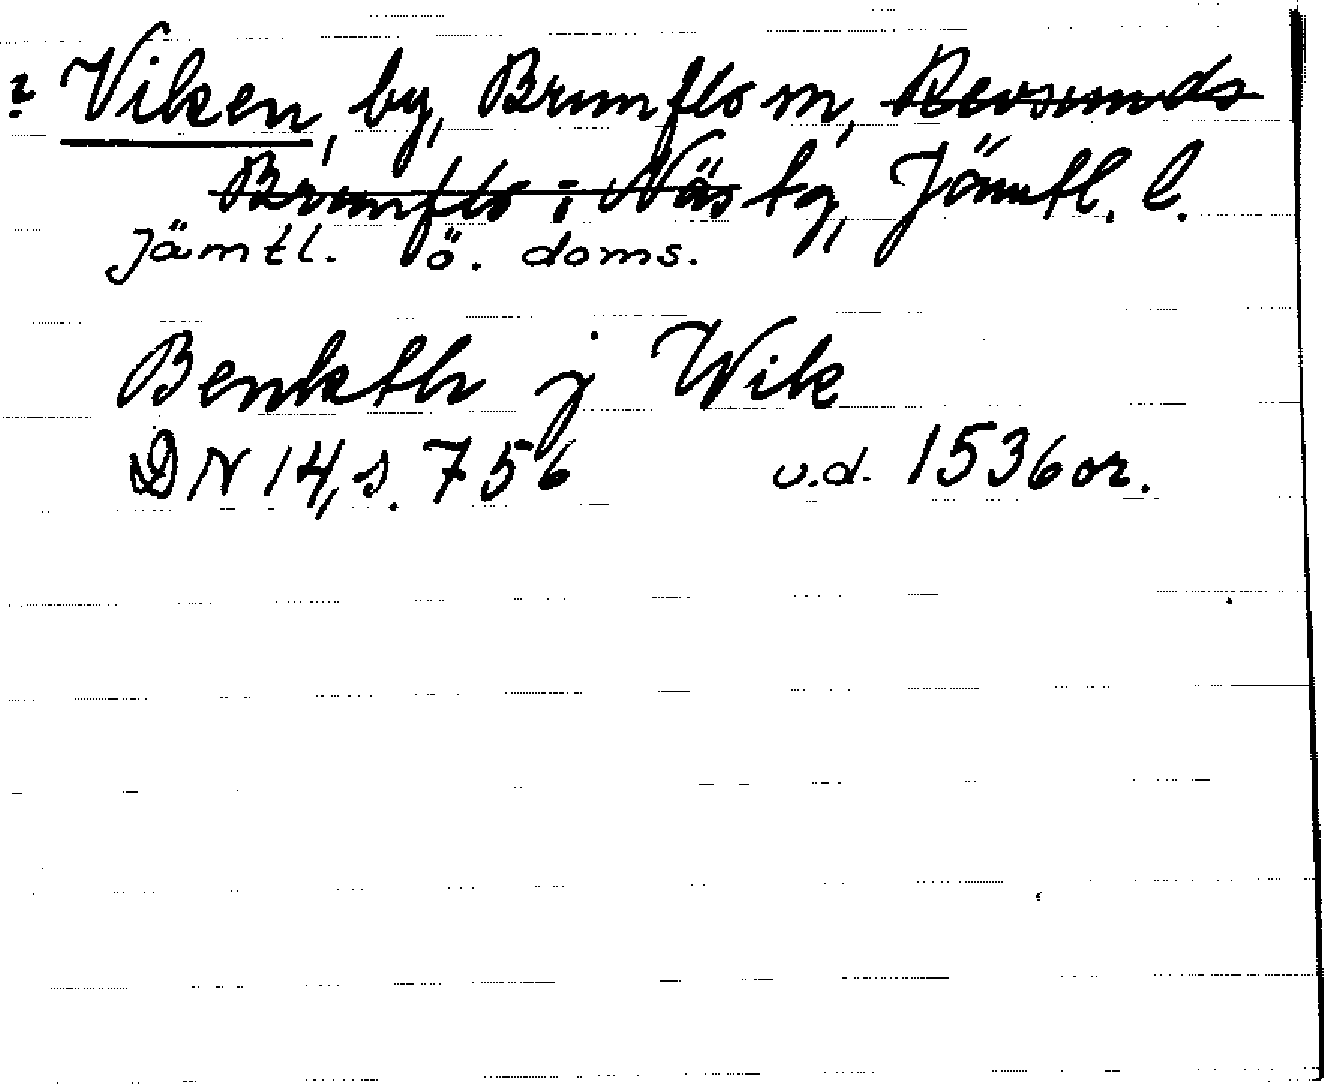 ? Viken, by, Brunflo sn, Revsunds
Brunflo i Näs tg, Jämtl. l.
Jämtl. ö. doms.
Benkth j Wik
DN 14, s. 756 u.d. 1536 or.